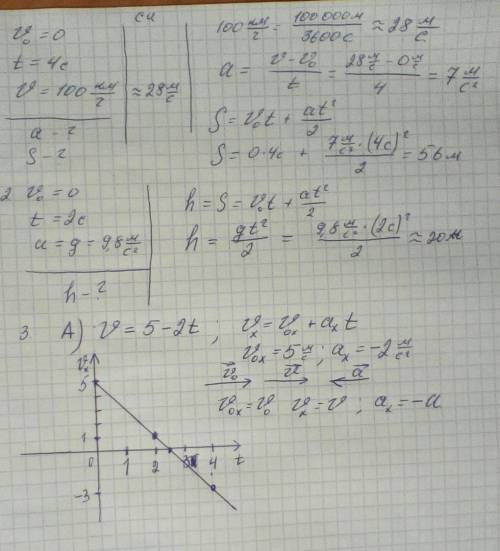 СИ
v₀ = 0
t = 4с
v = 100 км/ч ≈ 28 м/с
a - ?
S - ?
100 км/ч = 100000м/3600с ≈ 28 м/с
a = (v - v₀)/t = (28 м/с - 0 м/с)/4 = 7 м/с²
S = v₀t + at²/2
S = 0·4с + (7 м/с² · (4с)²)/2 = 56 м
2 v₀ = 0
t = 2с
a = g = 9,8 м/с²
h - ?
h = S = v₀t + at²/2
h = gt²/2 = (9,8 м/с² · (2с)²)/2 ≈ 20 м
3. А) v = 5 - 2t ; vₓ = v₀ₓ + aₓt
v₀ₓ = 5 м/с ; aₓ = -2 м/с²
v⃗₀ v⃗ a⃗
v₀ₓ = v₀ vₓ = v ; aₓ = -a
vₓ
5
1
0 1 2 3 4 t
-3